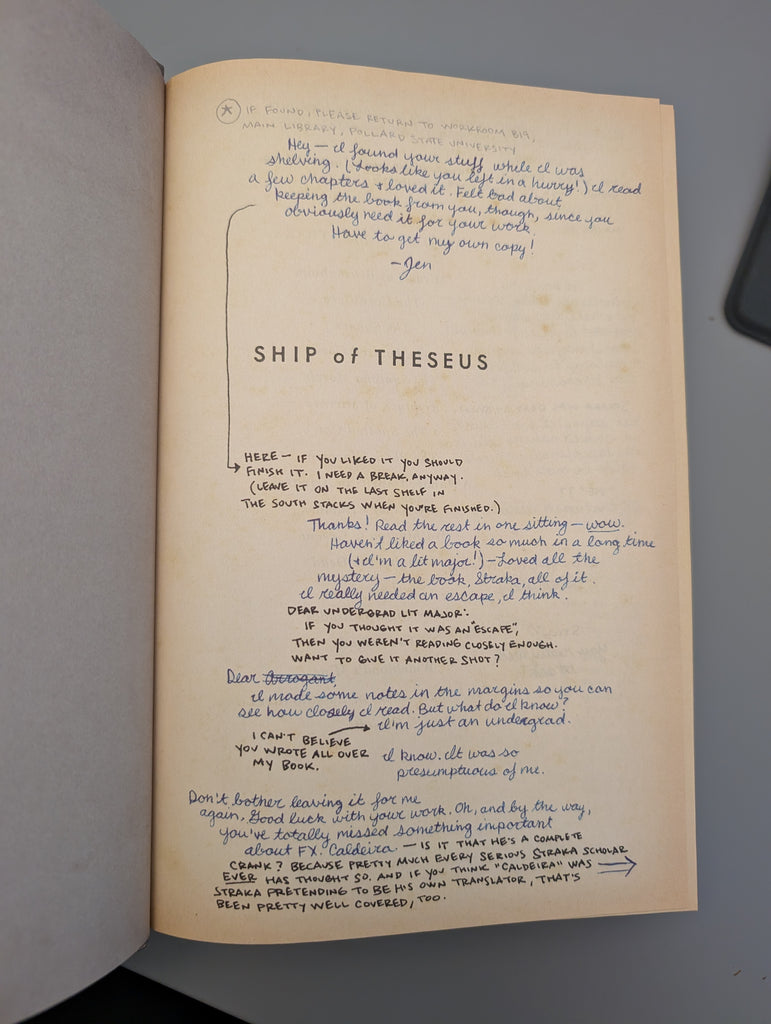 IF FOUND, PLEASE RETURN TO WORKROOM B19,
MAIN LIBRARY, POLLARD STATE UNIVERSITY
Hey — I found your stuff while I was
shelving. (Looks like you left in a hurry!) I read
a few chapters + loved it. Felt bad about
keeping the book from you, though, since you
obviously need it for your work.
Have to get my own copy!
— Jen
SHIP of THESEUS
HERE — IF YOU LIKED IT YOU SHOULD
FINISH IT. I NEED A BREAK, ANYWAY.
(LEAVE IT ON THE LAST SHELF IN
THE SOUTH STACKS WHEN YOU'RE FINISHED.)
Thanks! Read the rest in one sitting — wow.
Haven't liked a book so much in a long time
(+ I'm a lit major!) — Loved all the
mystery — the book, Straka, all of it.
I really needed an escape, I think.
DEAR UNDERGRAD LIT MAJOR:
IF YOU THOUGHT IT WAS AN "ESCAPE",
THEN YOU WEREN'T READING CLOSELY ENOUGH.
WANT TO GIVE IT ANOTHER SHOT?
Dear Arrogant,
I made some notes in the margins so you can
see how closely I read. But what do I know?
I'm just an undergrad.
I CAN'T BELIEVE
YOU WROTE ALL OVER
MY BOOK.
I know. It was so
presumptuous of me.
Don't bother leaving it for me
again. Good luck with your work. Oh, and by the way,
you've totally missed something important
about FX. Caldeira — IS IT THAT HE'S A COMPLETE
CRANK? BECAUSE PRETTY MUCH EVERY SERIOUS STRAKA SCHOLAR
EVER HAS THOUGHT SO. AND IF YOU THINK "CALDEIRA" WAS
STRAKA PRETENDING TO BE HIS OWN TRANSLATOR, THAT'S
BEEN PRETTY WELL COVERED, TOO.